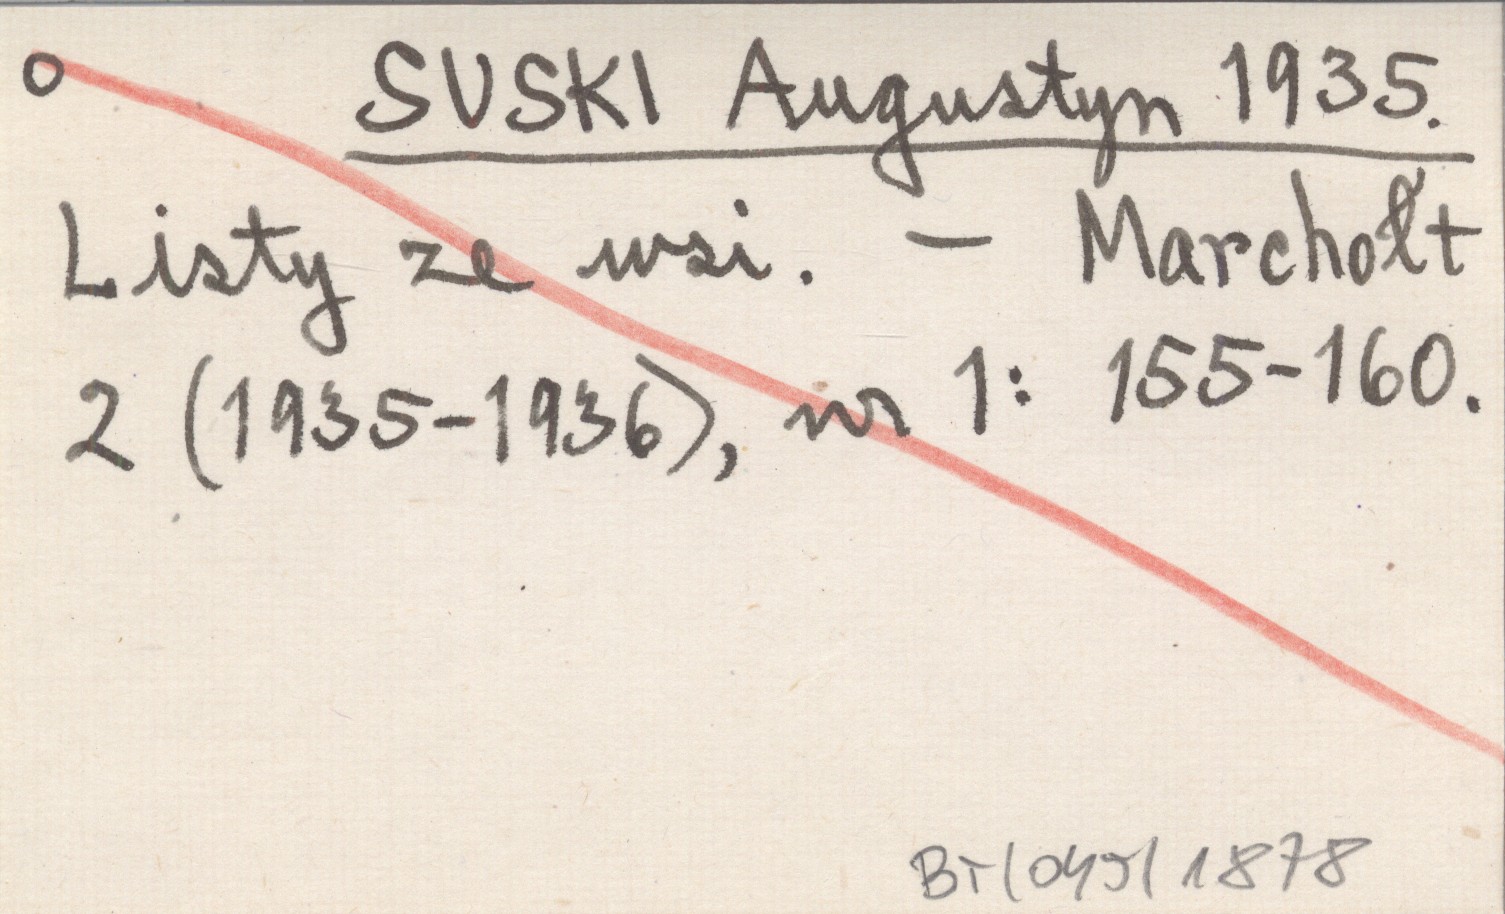 o SUSKI Augustyn 1935.
Listy ze wsi. – Marchołt
2 (1935-1936), nr 1: 155-160.
BT/049/1878